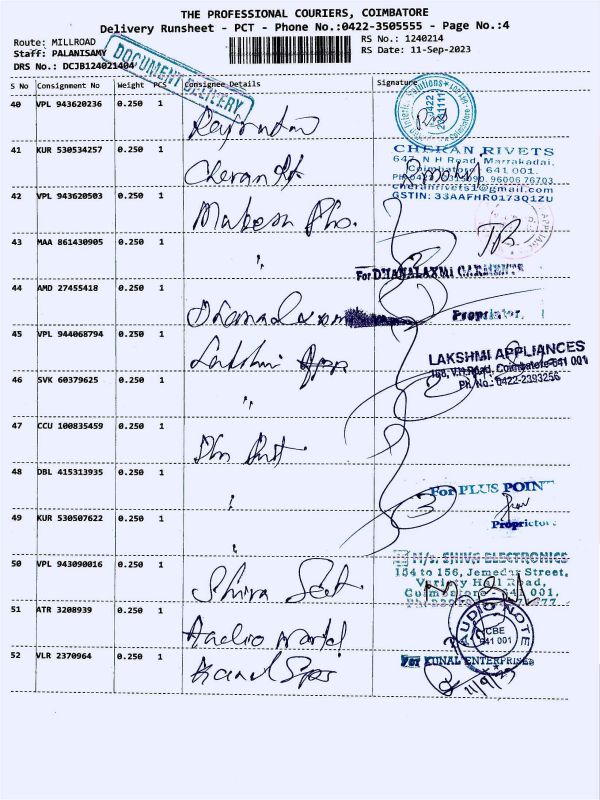 THE PROFESSIONAL COURIERS, COIMBATORE
Delivery Runsheet - PCT - Phone No.:0422-3505555 - Page No.:4
Route: MILLROAD
RS No.: 1240214
Staff: PALANISAMY
RS Date: 11-Sep-2023
DRS No.: DCJB124021404
DOCUMENT DELIVERY
S No Consignment No Weight PCS Consignee Details Signature
40 VPL 943620236 0.250 1
Coimbatore
41 KUR 530534257 0.250 1 Cheran
CHERAN RIVETS
647, N H Road, Marrakadai,
Coimbatore - 641 001.
cheranrivets1@gmail.com
GSTIN: 33AAFHR0173Q1ZU
42 VPL 943620503 0.250 1 Mahesh Pho.
43 MAA 861430905 0.250 1 "
For DHANALAXMI GARMENTS
44 AMD 27455418 0.250 1
Proprietor.
45 VPL 944068794 0.250 1 Lakshmi App
LAKSHMI APPLIANCES
188, V.H.Road, Coimbatore-641 001
Ph. No.: 0422-2393256
46 SVK 60379625 0.250 1 "
47 CCU 100835459 0.250 1
48 DBL 415313935 0.250 1 "
3
For PLUS POINT
49 KUR 530507622 0.250 1 "
Proprietor.
50 VPL 943090016 0.250 1 Shiva
M/s. SHIVA ELECTRONICS
154 to 156, Jemedar Street,
Variety Hall Road,
Coimbatore - 641 001.
51 ATR 3208939 0.250 1 Audio
AUDIO NOTE
CBE
641 001
52 VLR 2370964 0.250 1
For KUNAL ENTERPRISES
11/9/23